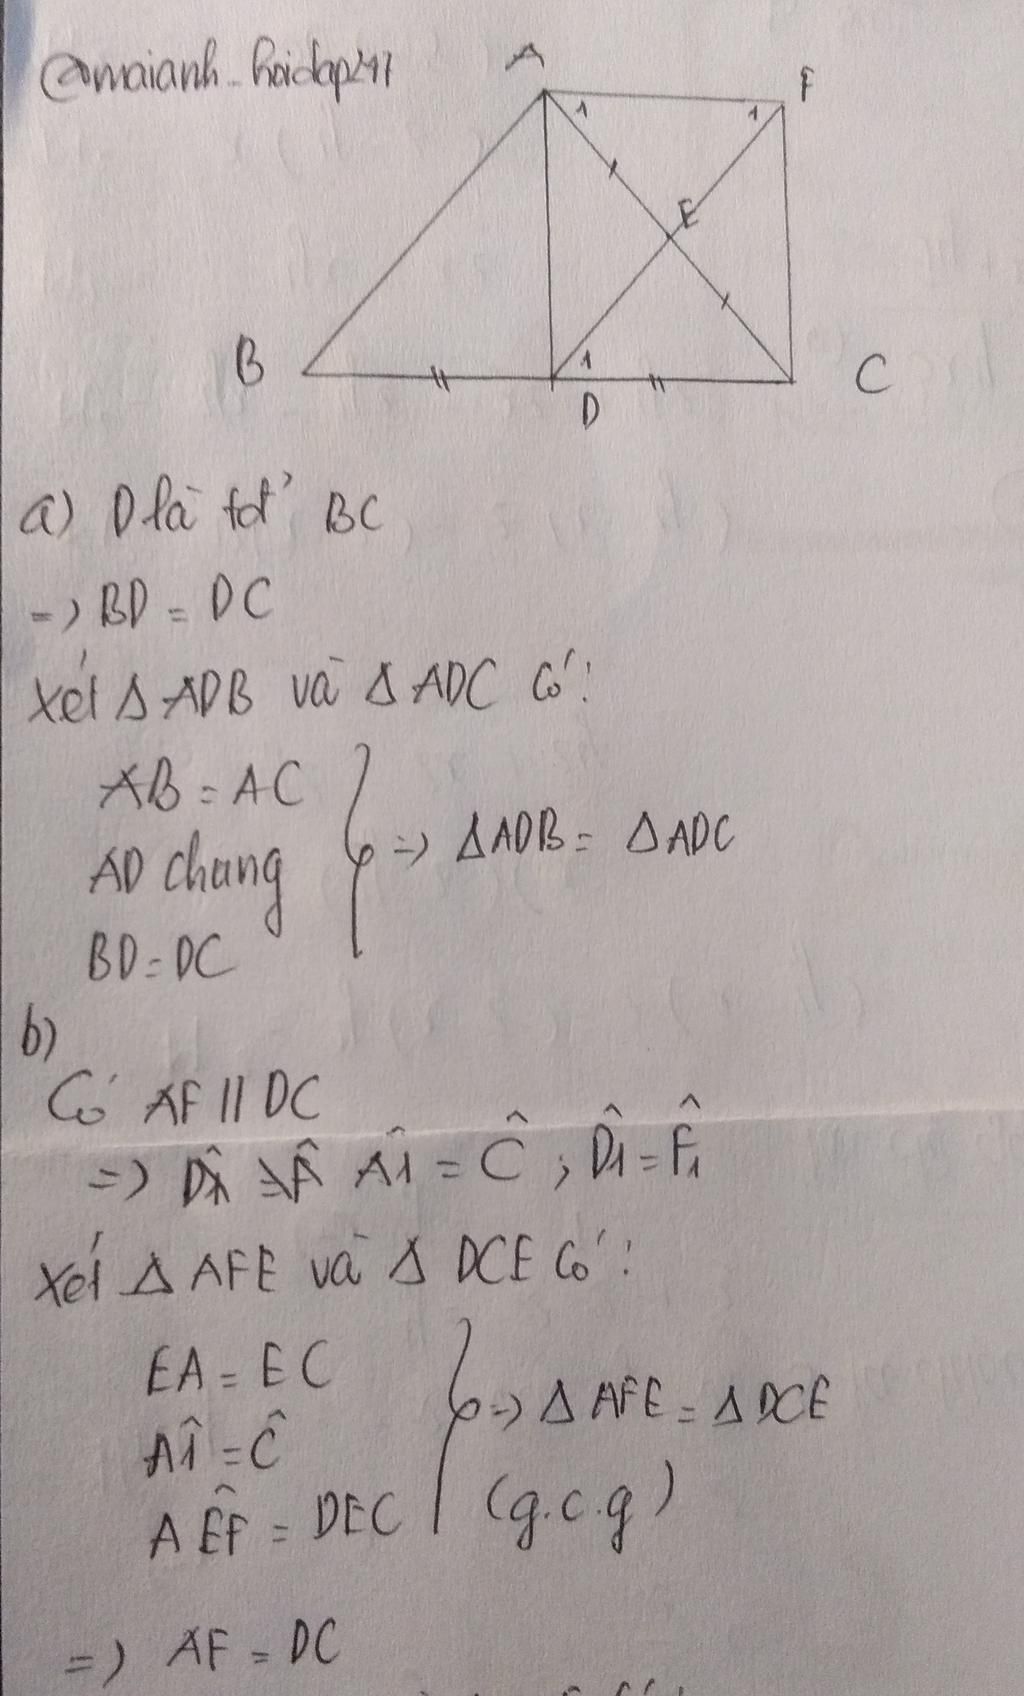 @maianh_hoidap247
A
F
1
1
E
B
1
C
D
a) D là tđ' BC
=> BD = DC
Xét Δ ADB và Δ ADC có:
AB = AC
AD chung
BD = DC
=> ΔADB = ΔADC
b)
Có AF // DC
=> Â1 = Ĉ ; D̂1 = F̂1
Xét Δ AFE và Δ DCE có:
EA = EC
Â1 = Ĉ
AÊF = DEC
=> Δ AFE = Δ DCE
(g.c.g)
=> AF = DC